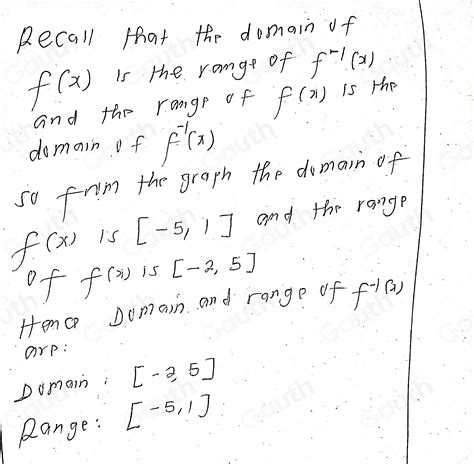 Recall that the domain of
f(x) is the range of f⁻¹(x)
and the range of f(x) is the
domain of f⁻¹(x)
so from the graph the domain of
f(x) is [-5, 1] and the range
of f(x) is [-2, 5]
Hence Domain and range of f⁻¹(x)
are:
Domain: [-2, 5]
Range: [-5, 1]